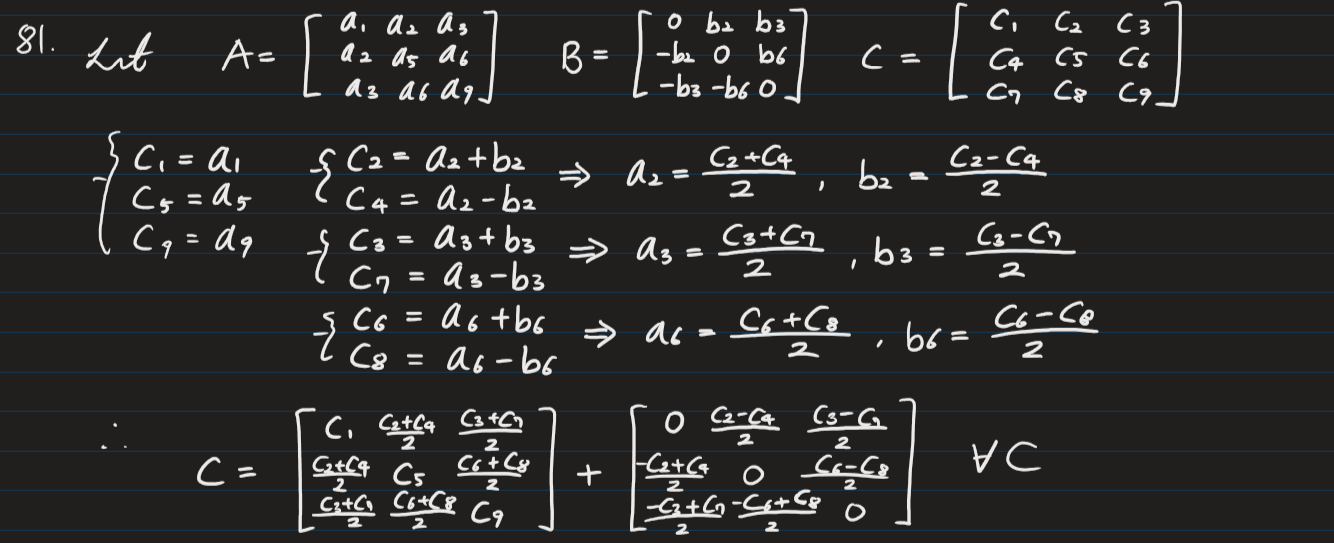 81. Let A = [ a₁ a₂ a₃ ; a₂ a₅ a₆ ; a₃ a₆ a₉ ] B = [ 0 b₂ b₃ ; -b₂ 0 b₆ ; -b₃ -b₆ 0 ] C = [ C₁ C₂ C₃ ; C₄ C₅ C₆ ; C₇ C₈ C₉ ]
{ C₁ = a₁ { C₂ = a₂ + b₂ ⇒ a₂ = (C₂+C₄)/2 , b₂ = (C₂-C₄)/2
C₅ = a₅ C₄ = a₂ - b₂
C₉ = a₉ { C₃ = a₃ + b₃ ⇒ a₃ = (C₃+C₇)/2 , b₃ = (C₃-C₇)/2
C₇ = a₃ - b₃
{ C₆ = a₆ + b₆ ⇒ a₆ = (C₆+C₈)/2 , b₆ = (C₆-C₈)/2
C₈ = a₆ - b₆
∴ C = [ C₁ (C₂+C₄)/2 (C₃+C₇)/2 ; (C₂+C₄)/2 C₅ (C₆+C₈)/2 ; (C₃+C₇)/2 (C₆+C₈)/2 C₉ ] + [ 0 (C₂-C₄)/2 (C₃-C₇)/2 ; (-C₂+C₄)/2 0 (C₆-C₈)/2 ; (-C₃+C₇)/2 (-C₆+C₈)/2 0 ] ∀C